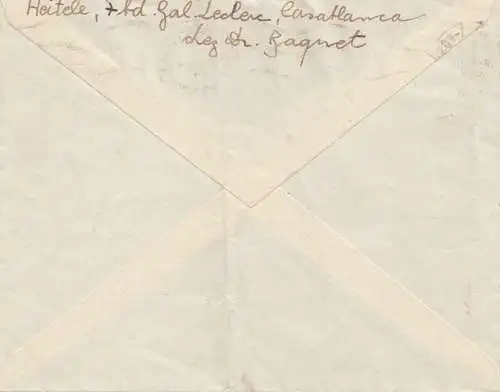 Heitele, 7 bd. Gal Leclerc, Casablanca
chez Dr. Baquet